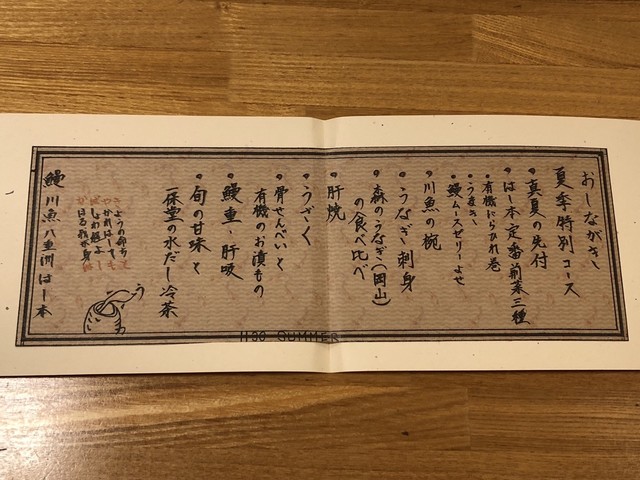 おしながき
夏季特別コース
・真夏の先付
・はし本定番前菜三種
・有機にらひれ巻
・うまき
・鰻ムースゼリーよせ
・川魚の椀
・うなぎ刺身
・森のうなぎ(岡山)
の食べ比べ
・肝焼
・うざく
・骨せんべいと
有機のお漬もの
・鰻重・肝吸
・旬の甘味と
一保堂の水だし冷茶
鰻 川魚 八重洲 はし本
H30 SUMMER